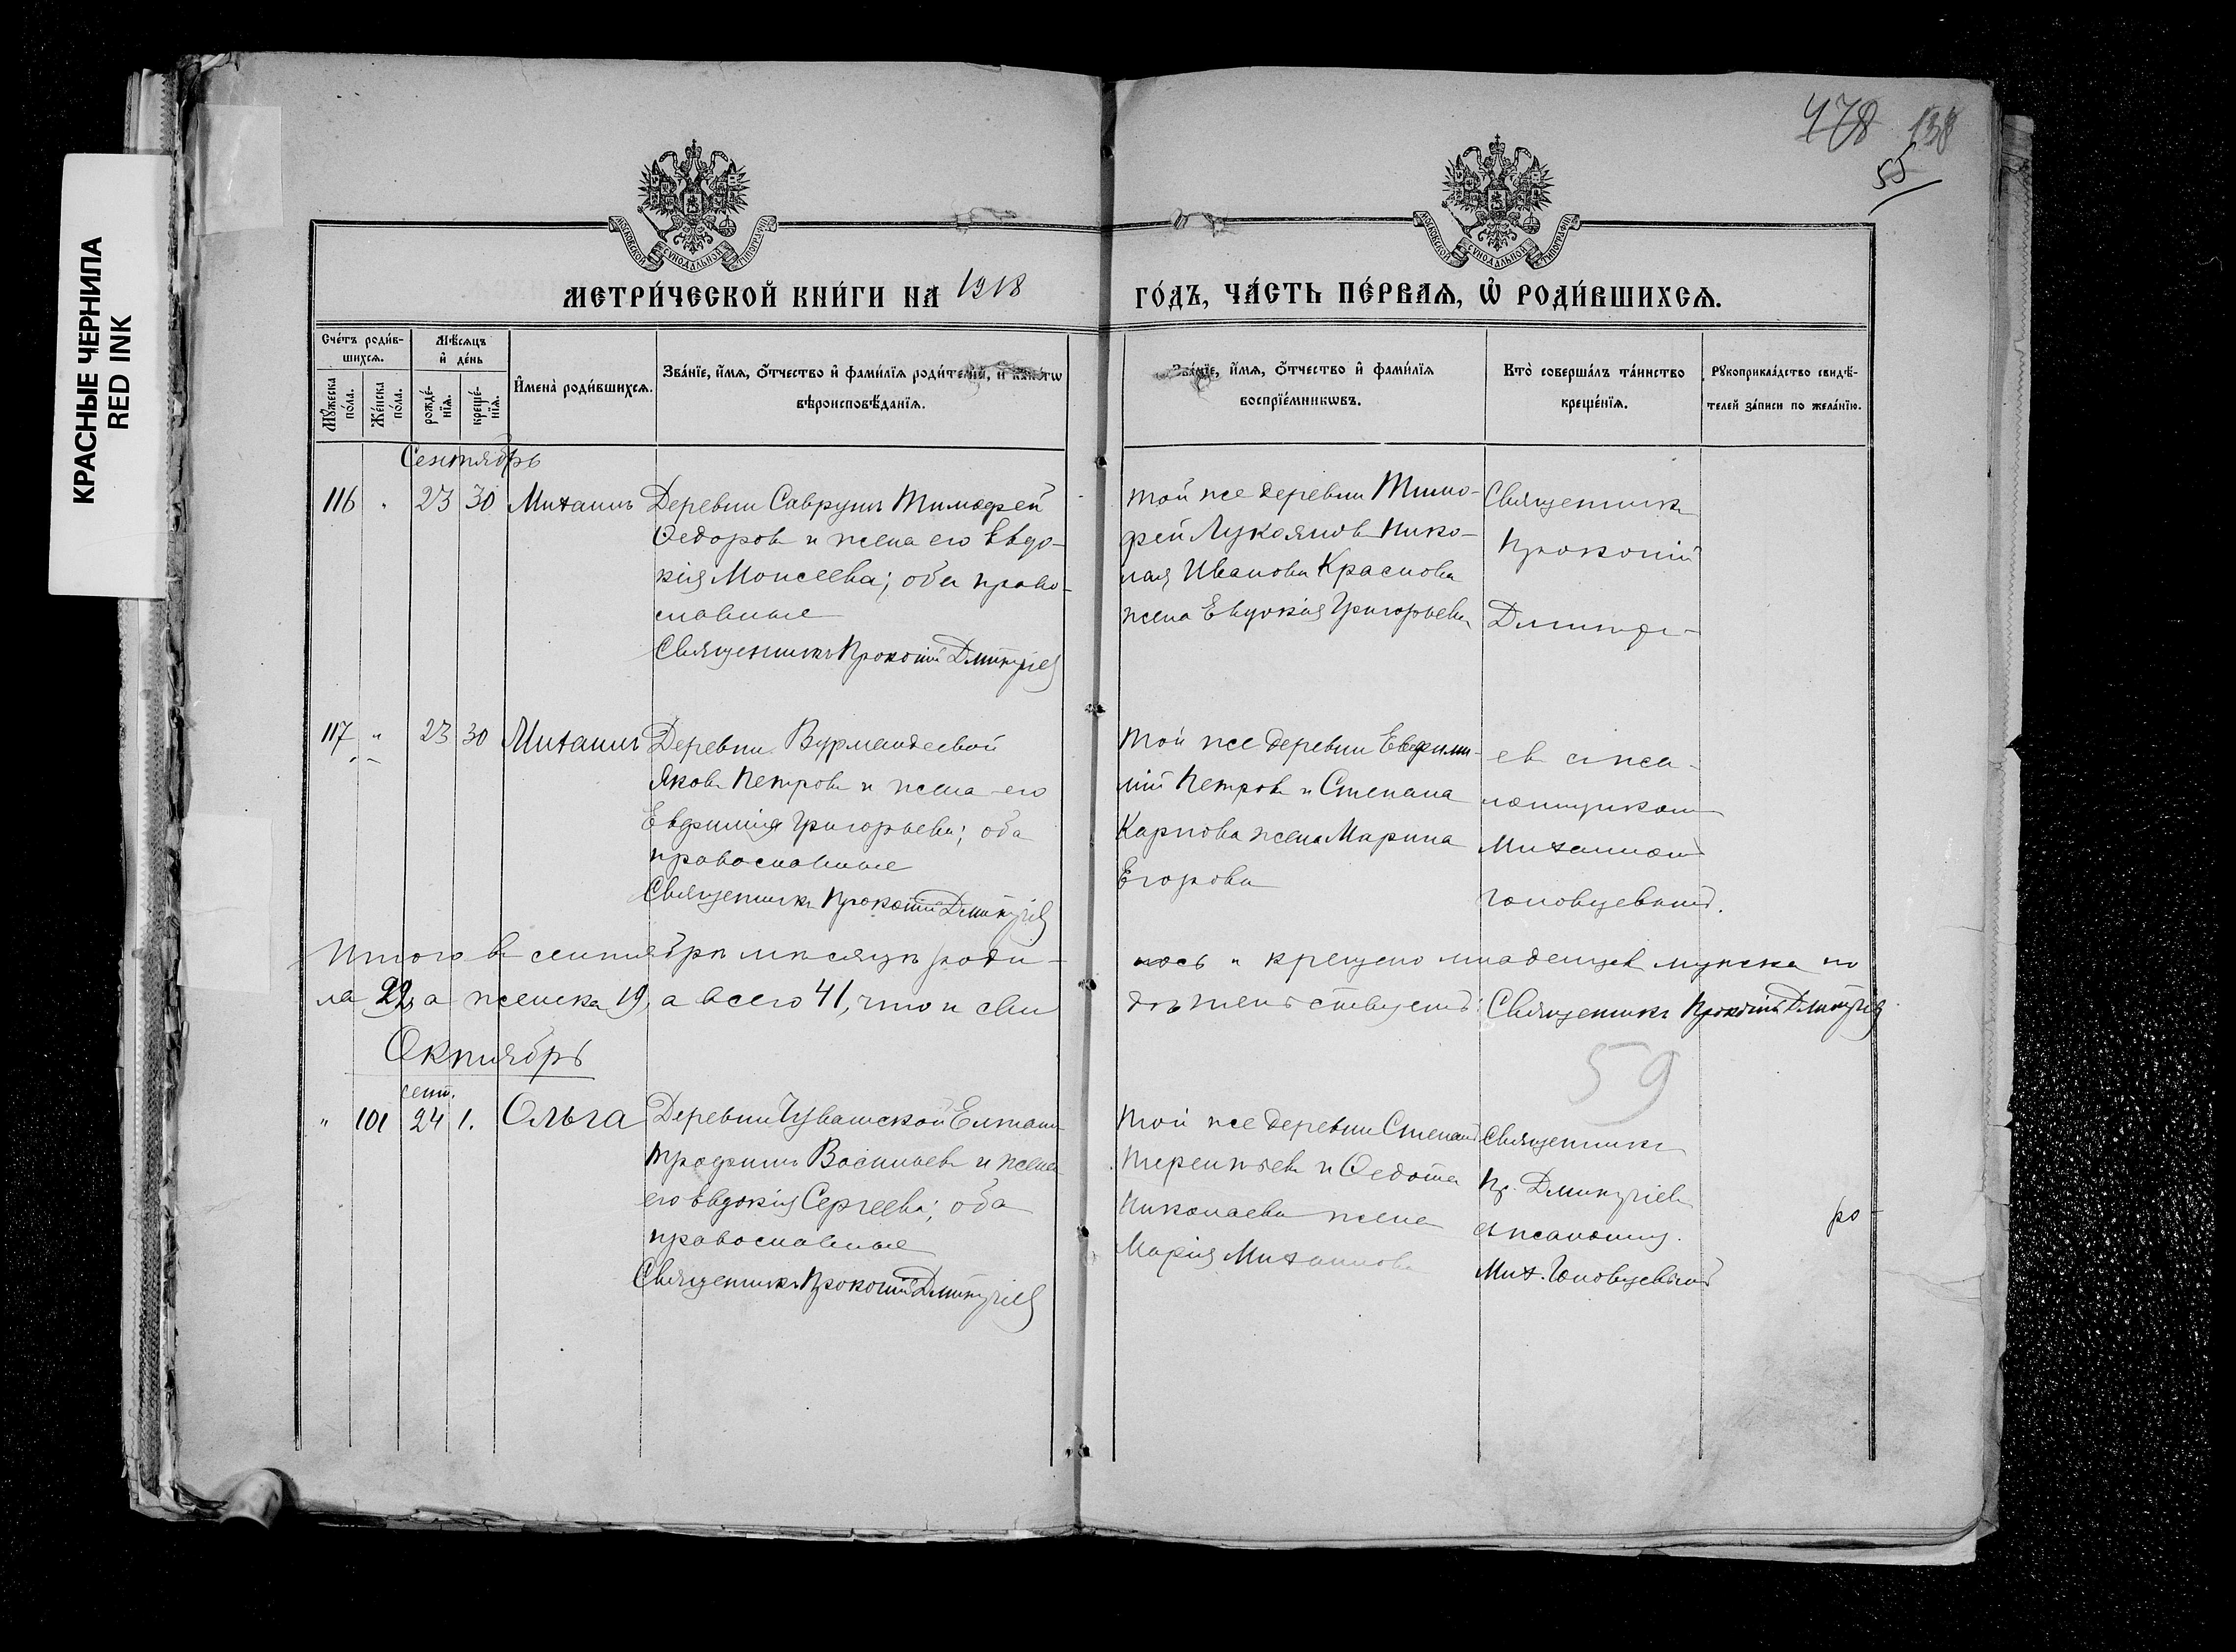 КРАСНЫЕ ЧЕРНИЛА
RED INK
478 138
55
МОСКОВСКОЙ СУНОДАЛЬНОЙ ТИПОГРАФІИ
МОСКОВСКОЙ СУНОДАЛЬНОЙ ТИПОГРАФІИ
МЕТРИ́ЧЕСКОЙ КНИ́ГИ НА 1918
ГО́ДЪ, ЧА́СТЬ ПЕ́РВАѦ, Ѡ҆ РОДИ́ВШИХСѦ.
Сче́тъ роди́в-
шихсѧ.
Мѣ́сѧцъ
и҆ де́нь
Мꙋ́жеска
по́ла.
Же́нска
по́ла.
рожде́-
нїѧ.
креще́-
нїѧ.
И҆мена̀ роди́вшихсѧ.
Зва́нїе, и҆́мѧ, ѻ҆́тчество и҆ фами́лїѧ роди́телей, и како́гѡ
вѣроисповѣ́данїѧ.
Зва́нїе, и҆́мѧ, ѻ҆́тчество и҆ фами́лїѧ
воспрїе́мникѡвъ.
Кто̀ соверша́лъ та́инство
креще́нїѧ.
Рꙋкоприкла́дство свидѣ́-
телей за́писи по жела́нїю.
Сентябрь
116 " 23 30 Михаилъ
Деревни Савруши Тимофей
Ѳедоровъ и жена его Евдо-
кія Моисеева; оба право-
славные
Священникъ Прокопій Дмитріев
той же деревни Тимо-
фей Лукояновъ Нико-
лая Иванова Краснова
жена Евдокія Григорьева
Священникъ
Прокопій
Дмитрі-
117 " 23 30 Михаилъ
Деревни Вурмандеевой
Яковъ Петровъ и жена его
Евфимія Григорьева; оба
православные
Священникъ Прокопій Дмитріев
той же деревни Евфи-
мій Петровъ и Степана
Карпова жена Марина
Егорова
евъ с пса-
ломщикомъ
Михаиломъ
Головцевымъ.
Итого въ сентябрѣ мѣсяцѣ роди-
лось и крещено младенцевъ мужска по
ла 22, а женска 19, а всего 41, что и сви
дѣтельствуетъ: Священникъ Прокопій Дмитріев
Октябрь
59
сент.
" 101 24 1. Ольга
Деревни Чувашской Елтани
Трофимъ Васильевъ и жена
его Евдокія Сергеева; оба
православные
Священникъ Прокопій Дмитріев
той же деревни Степанъ
Терентьевъ и Ѳедота
Николаева жена
Марія Михаилова
Священникъ
Пр. Дмитріевъ
с псаломщ.
Мих. Головцевымъ
ро-